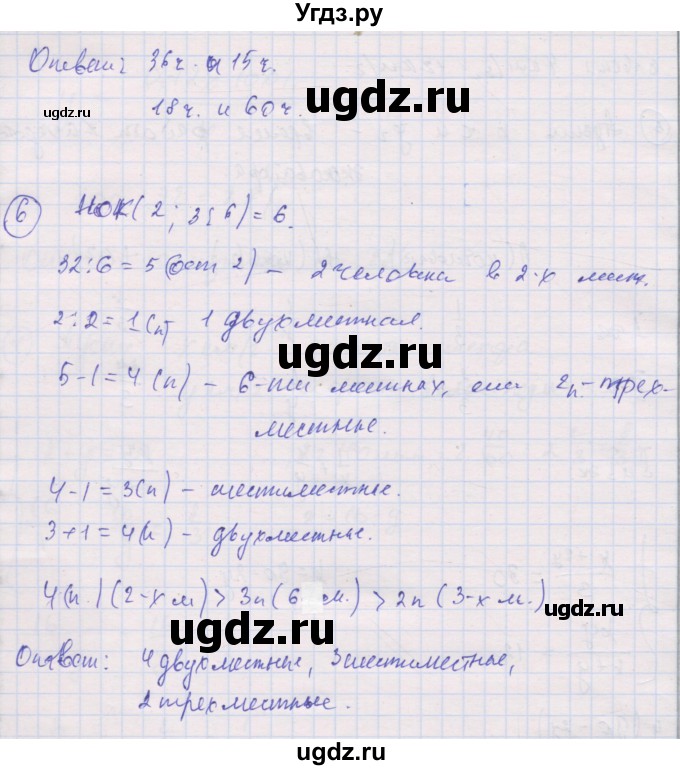 Угдз.ру
Ответ: 36ч. и 15ч.
ugdz.ru
ugdz.ru
18ч. и 60ч.
ugdz.ru
6 НОК(2; 3; 6) = 6.
32:6 = 5 (ост 2) – 2 человека в 2-х мест.
2:2 = 1(п) 1 двухместная.
ugdz.ru
5-1 = 4 (п) – 6-ти местных, или 2п – трех-
местные.
ugdz.ru
4-1 = 3(п) – шестиместные.
3+1 = 4(п) – двухместные.
ugdz.ru
4(п.) (2-х м) > 3п (6 м.) > 2п (3-х м.)
ugdz.ru
ugdz.ru
Ответ: 4 двухместные, 3 шестиместные,
2 трехместные.
ugdz.ru
ugdz.ru